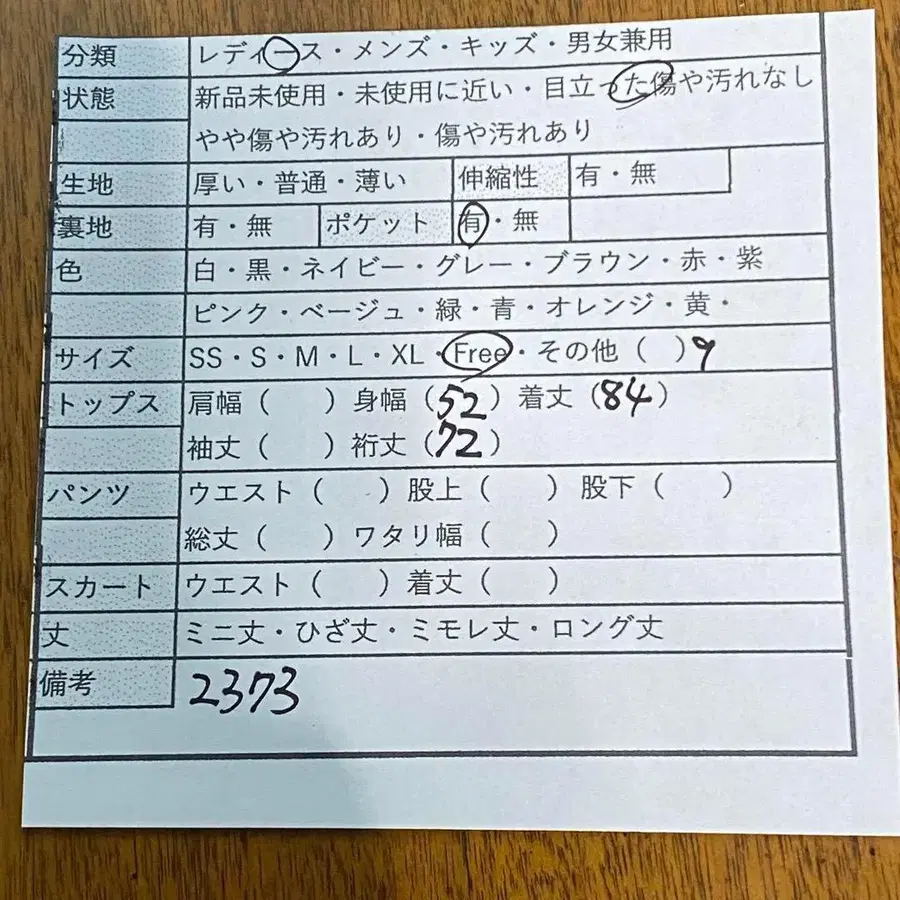 分類 レディース・メンズ・キッズ・男女兼用
状態 新品未使用・未使用に近い・目立った傷や汚れなし
やや傷や汚れあり・傷や汚れあり
生地 厚い・普通・薄い 伸縮性 有・無
裏地 有・無 ポケット 有・無
色 白・黒・ネイビー・グレー・ブラウン・赤・紫
ピンク・ベージュ・緑・青・オレンジ・黄・
サイズ SS・S・M・L・XL・Free・その他( )9
トップス 肩幅( )身幅(52)着丈(84)
袖丈( )裄丈(72)
パンツ ウエスト( )股上( )股下( )
総丈( )ワタリ幅( )
スカート ウエスト( )着丈( )
丈 ミニ丈・ひざ丈・ミモレ丈・ロング丈
備考 2373